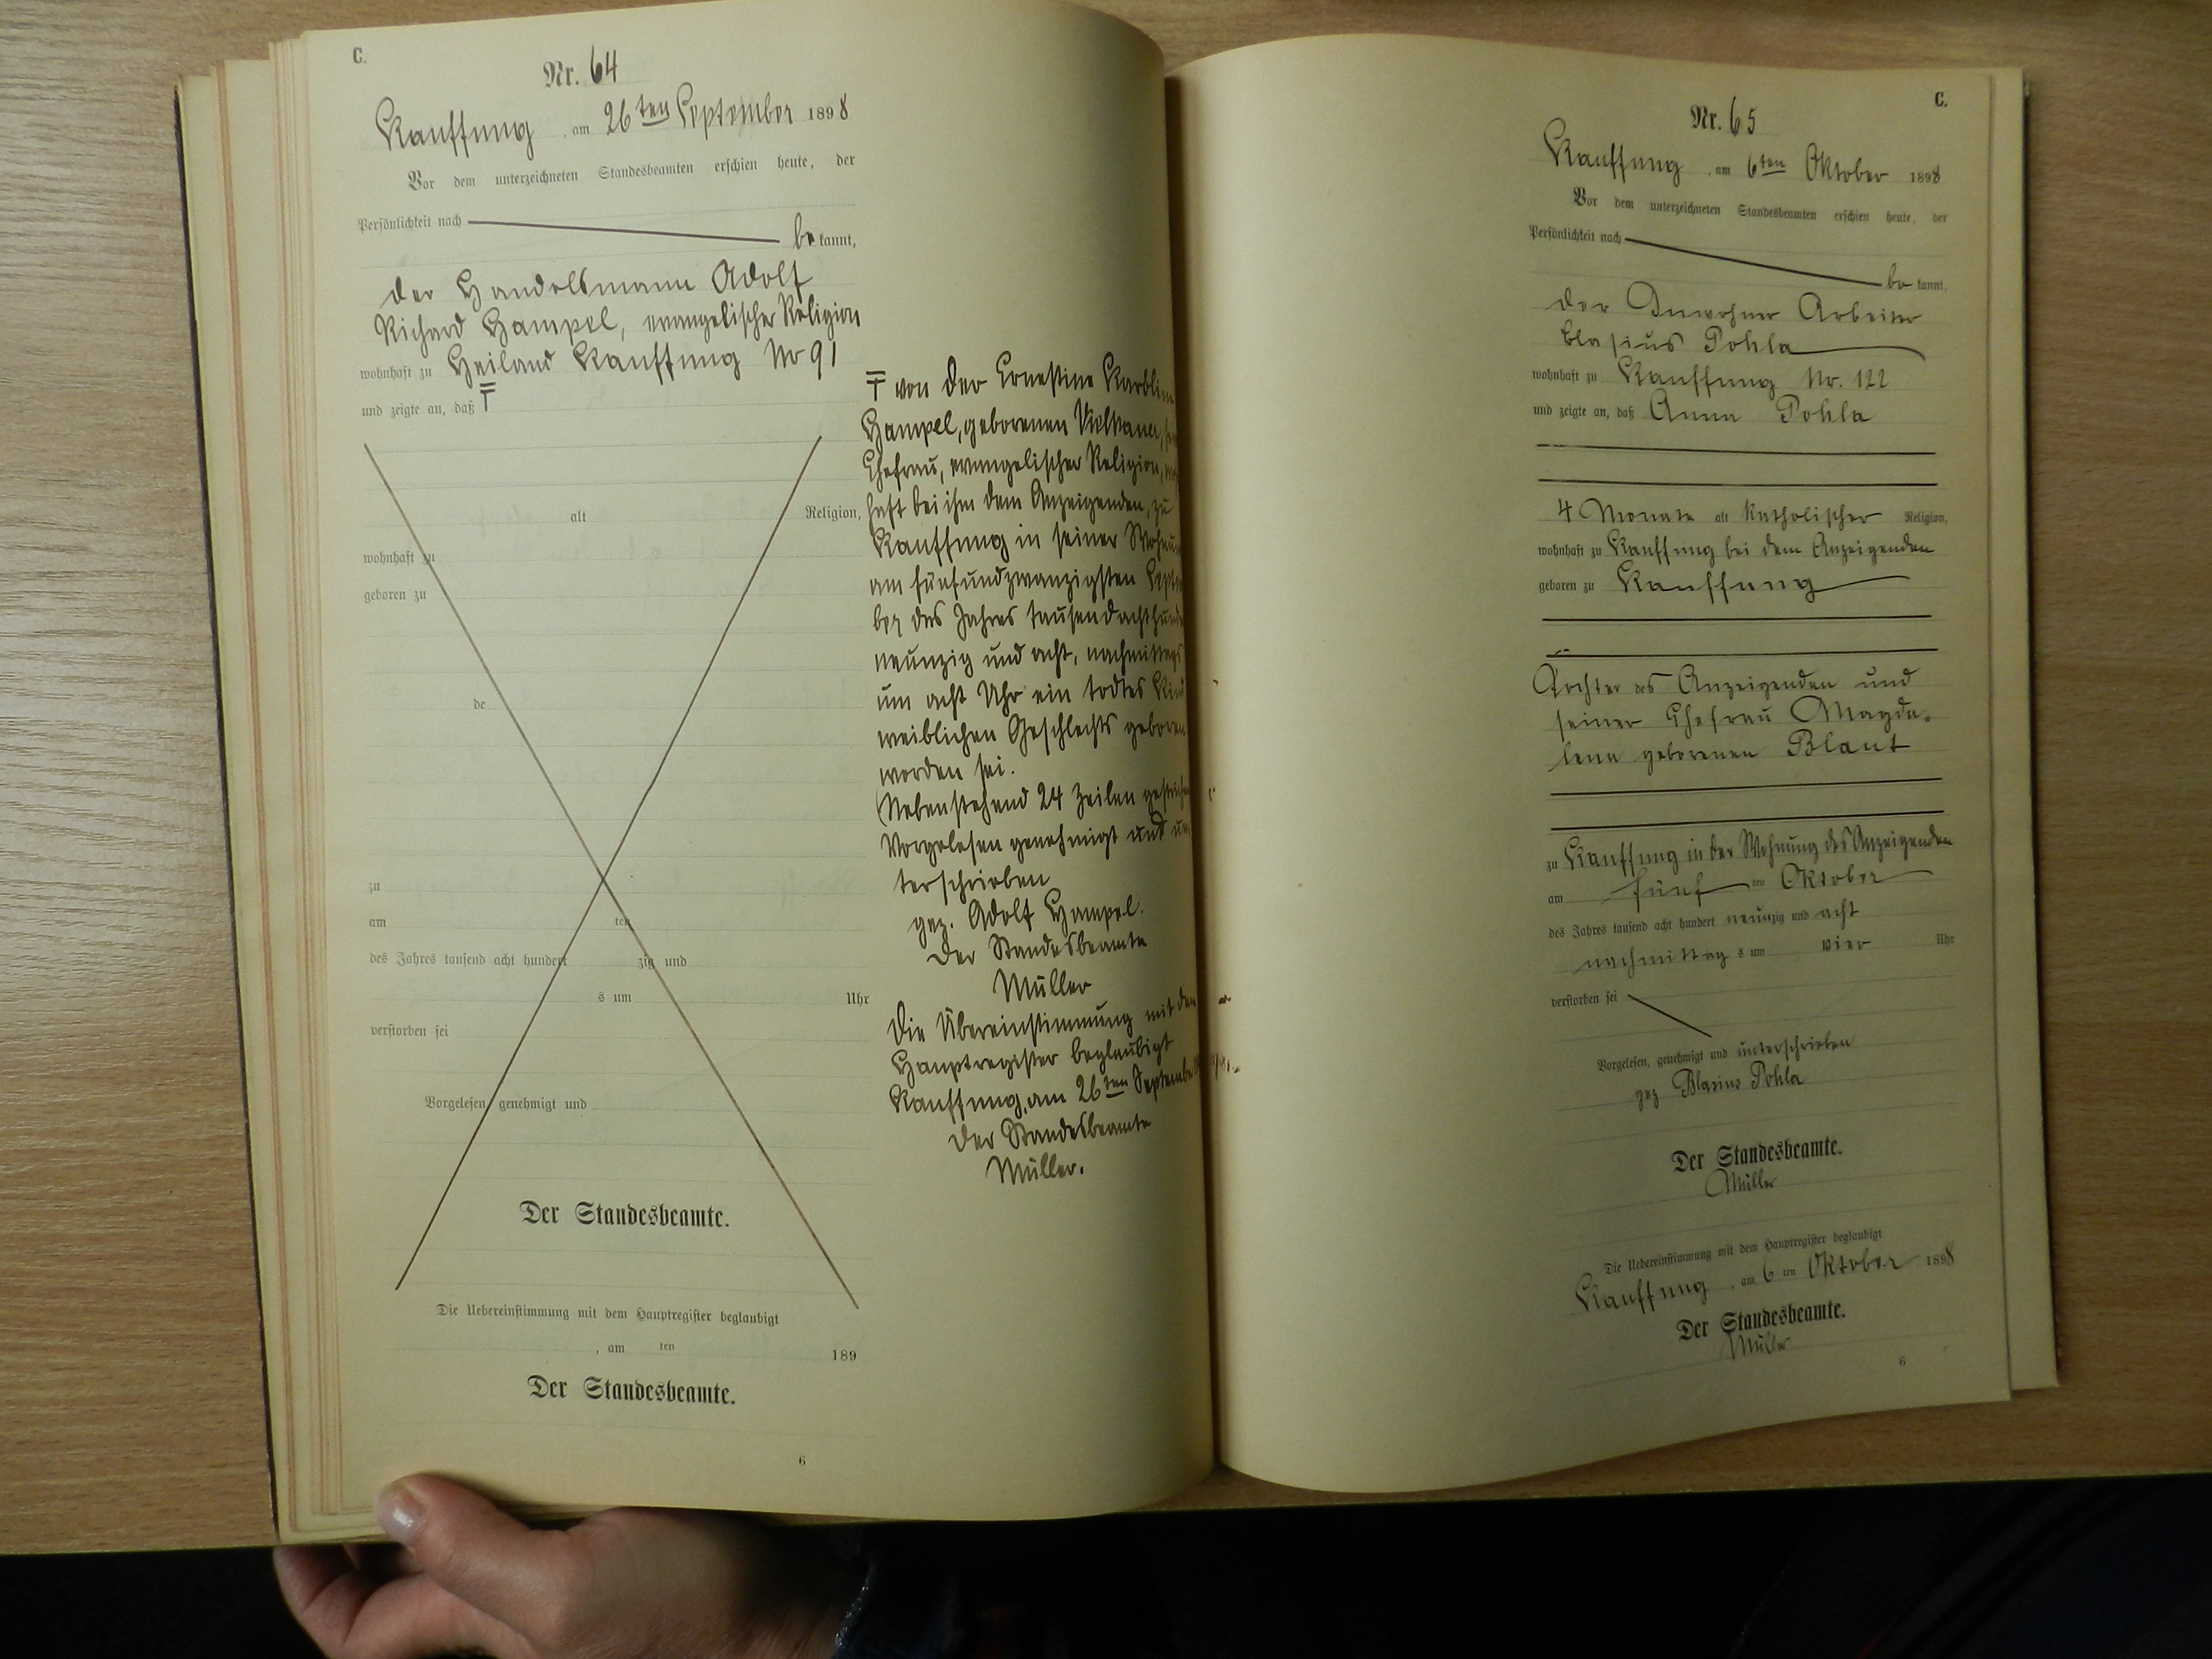 C.
Nr. 64
Kauffung, am 26ten September 1898
Vor dem unterzeichneten Standesbeamten erschien heute, der
Persönlichkeit nach
bekannt,
der Handelsmann Adolf
Richard Hampel, evangelischer Religion
wohnhaft zu Heiland Kauffung No 91
und zeigte an, daß ₸
alt Religion,
wohnhaft zu
geboren zu
de
zu
am ten
des Jahres tausend acht hundert zig und
s um Uhr
verstorben sei
Vorgelesen, genehmigt und
Der Standesbeamte.
Die Uebereinstimmung mit dem Hauptregister beglaubigt
, am ten 189
Der Standesbeamte.
6
₸ von der Ernestine
Hampel, geborenen
Ehefrau, evangelischer Religion,
haft bei ihm dem Anzeigenden, zu
Kauffung in seiner
am fünfundzwanzigsten
ber des Jahres
neunzig und acht, nachmittags
um acht Uhr ein todtes Kind
weiblichen Geschlechts geboren
worden sei.
(Nebenstehend 24 Zeilen
Vorgelesen genehmigt und un
terschrieben
gez. Adolf Hampel.
Der Standesbeamte
Müller
Die Übereinstimmung mit dem
Hauptregister beglaubigt
Kauffung, am 26ten September
Der Standesbeamte
Müller.
C.
Nr. 65
Kauffung, am 6ten Oktober 1898
Vor dem unterzeichneten Standesbeamten erschien heute, der
Persönlichkeit nach
bekannt,
der Inwohner Arbeiter
Blasius Pohla
wohnhaft zu Kauffung Nr. 122
und zeigte an, daß Anna Pohla
4 Monate alt katholischer Religion,
wohnhaft zu Kauffung bei dem Anzeigenden
geboren zu Kauffung
Tochter des Anzeigenden und
seiner Ehefrau Magda-
lena geborenen Blaut
zu Kauffung in der Wohnung des Anzeigenden
am fünf ten Oktober
des Jahres tausend acht hundert neunzig und acht
nachmittags um vier Uhr
verstorben sei
Vorgelesen, genehmigt und unterschrieben
gez Blasius Pohla
Der Standesbeamte.
Müller
Die Uebereinstimmung mit dem Hauptregister beglaubigt
Kauffung, am 6 ten Oktober 1898
Der Standesbeamte.
Müller
6